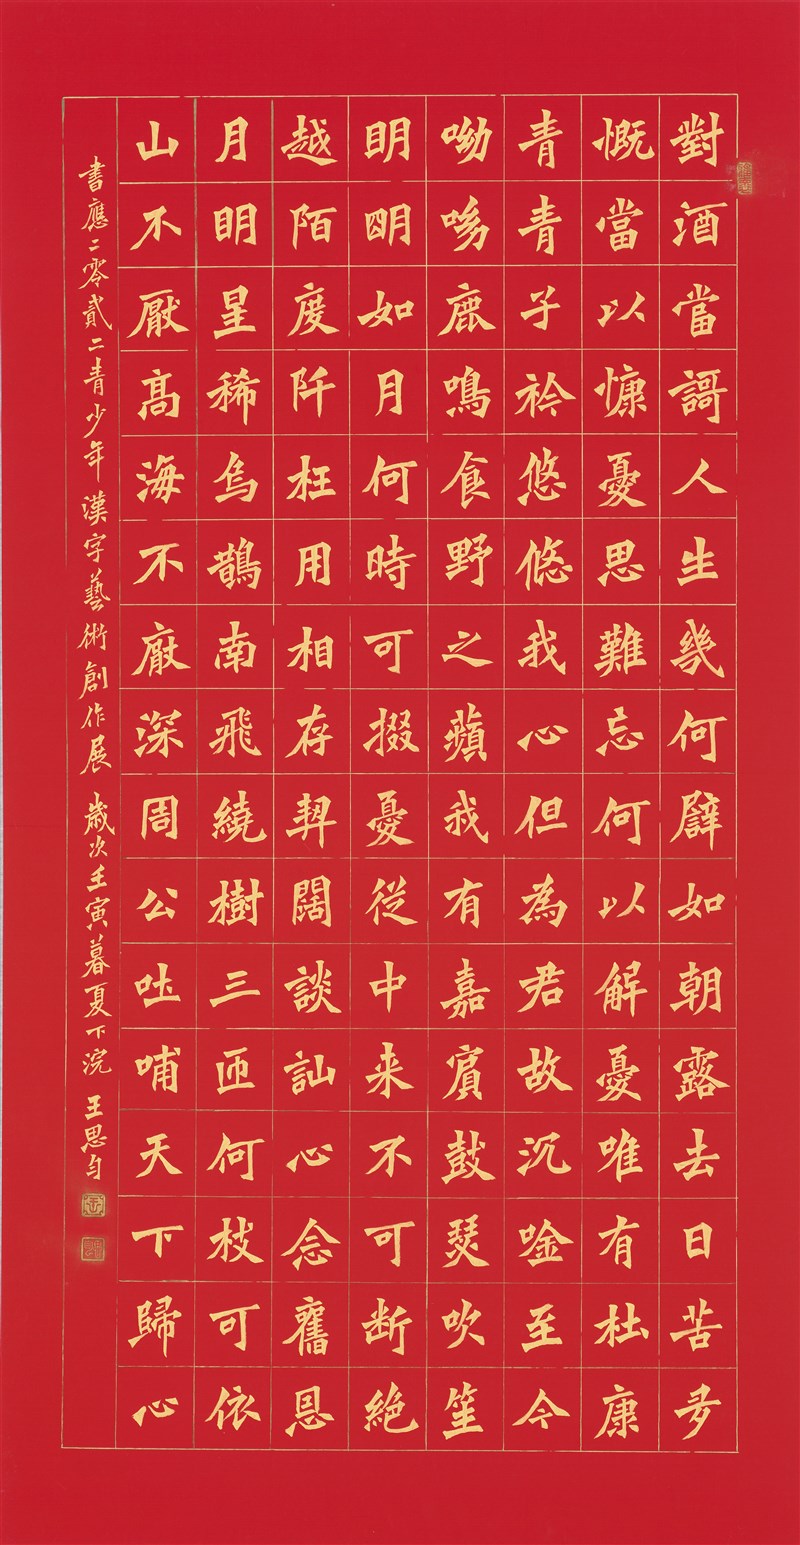 對酒當謌人生幾何譬如朝露去日苦多
慨當以慷憂思難忘何以解憂唯有杜康
青青子衿悠悠我心但為君故沉唫至今
呦呦鹿鳴食野之蘋我有嘉賓鼓瑟吹笙
明明如月何時可掇憂從中来不可断絕
越陌度阡枉用相存契闊談讌心念舊恩
月明星稀烏鵲南飛繞樹三匝何枝可依
山不厭高海不厭深周公吐哺天下歸心
書應二零貳二青少年漢字藝術創作展 歲次壬寅暮夏下浣 王思勻